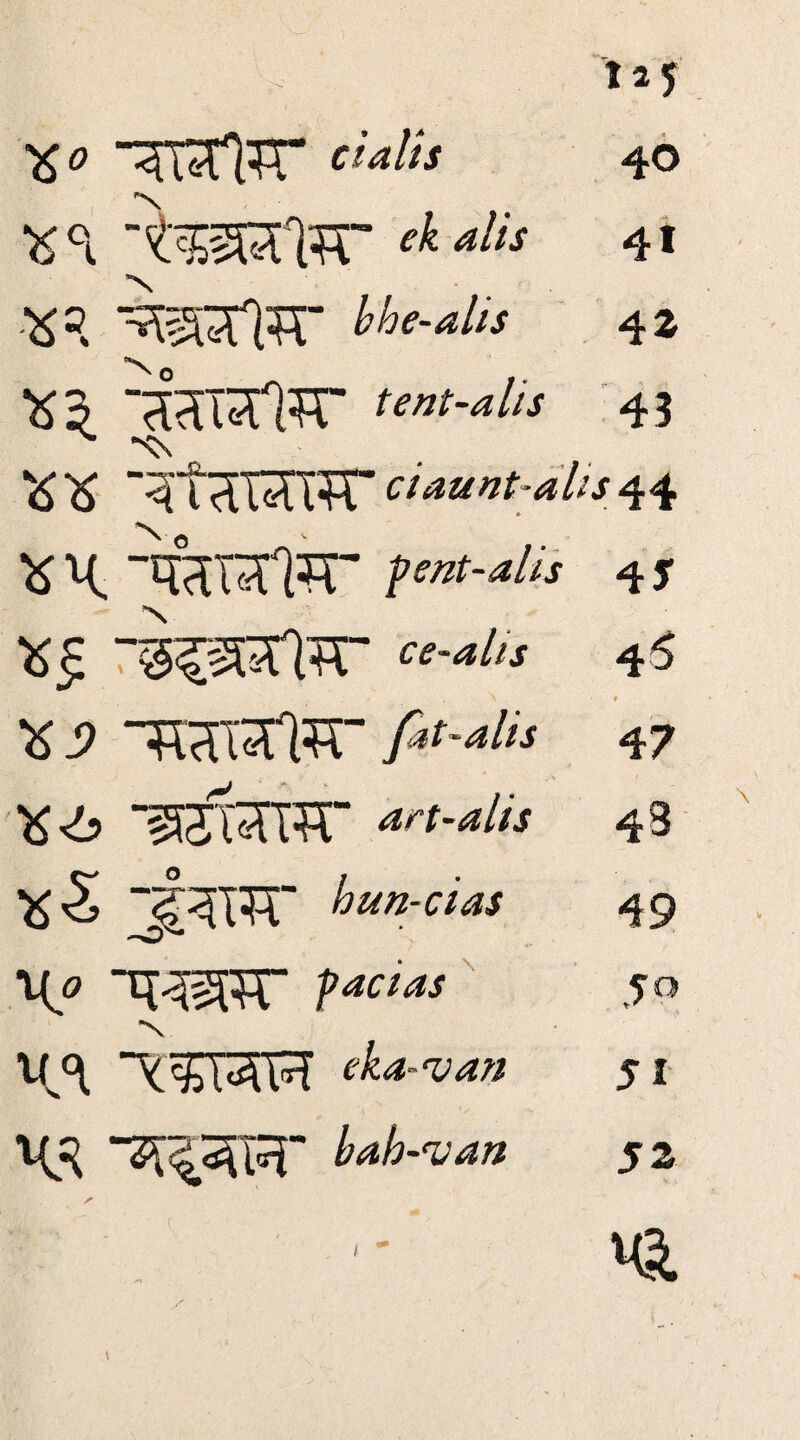 125
४० चालीस cialis 40
४१ ek alis 41
४२ bhe-alis 42
४३ तेंतालीस tent-alis 43
४४ ciaunt-alis 44
४५ पेंतालीस pent-alis 45
४६ ce-alis 46
४७ सतालीस fat-alis 47
४८ art-alis 48
४९ hun-cias 49
५० pacias 50
५१ eka-van 51
५२ bah-van 52
५३